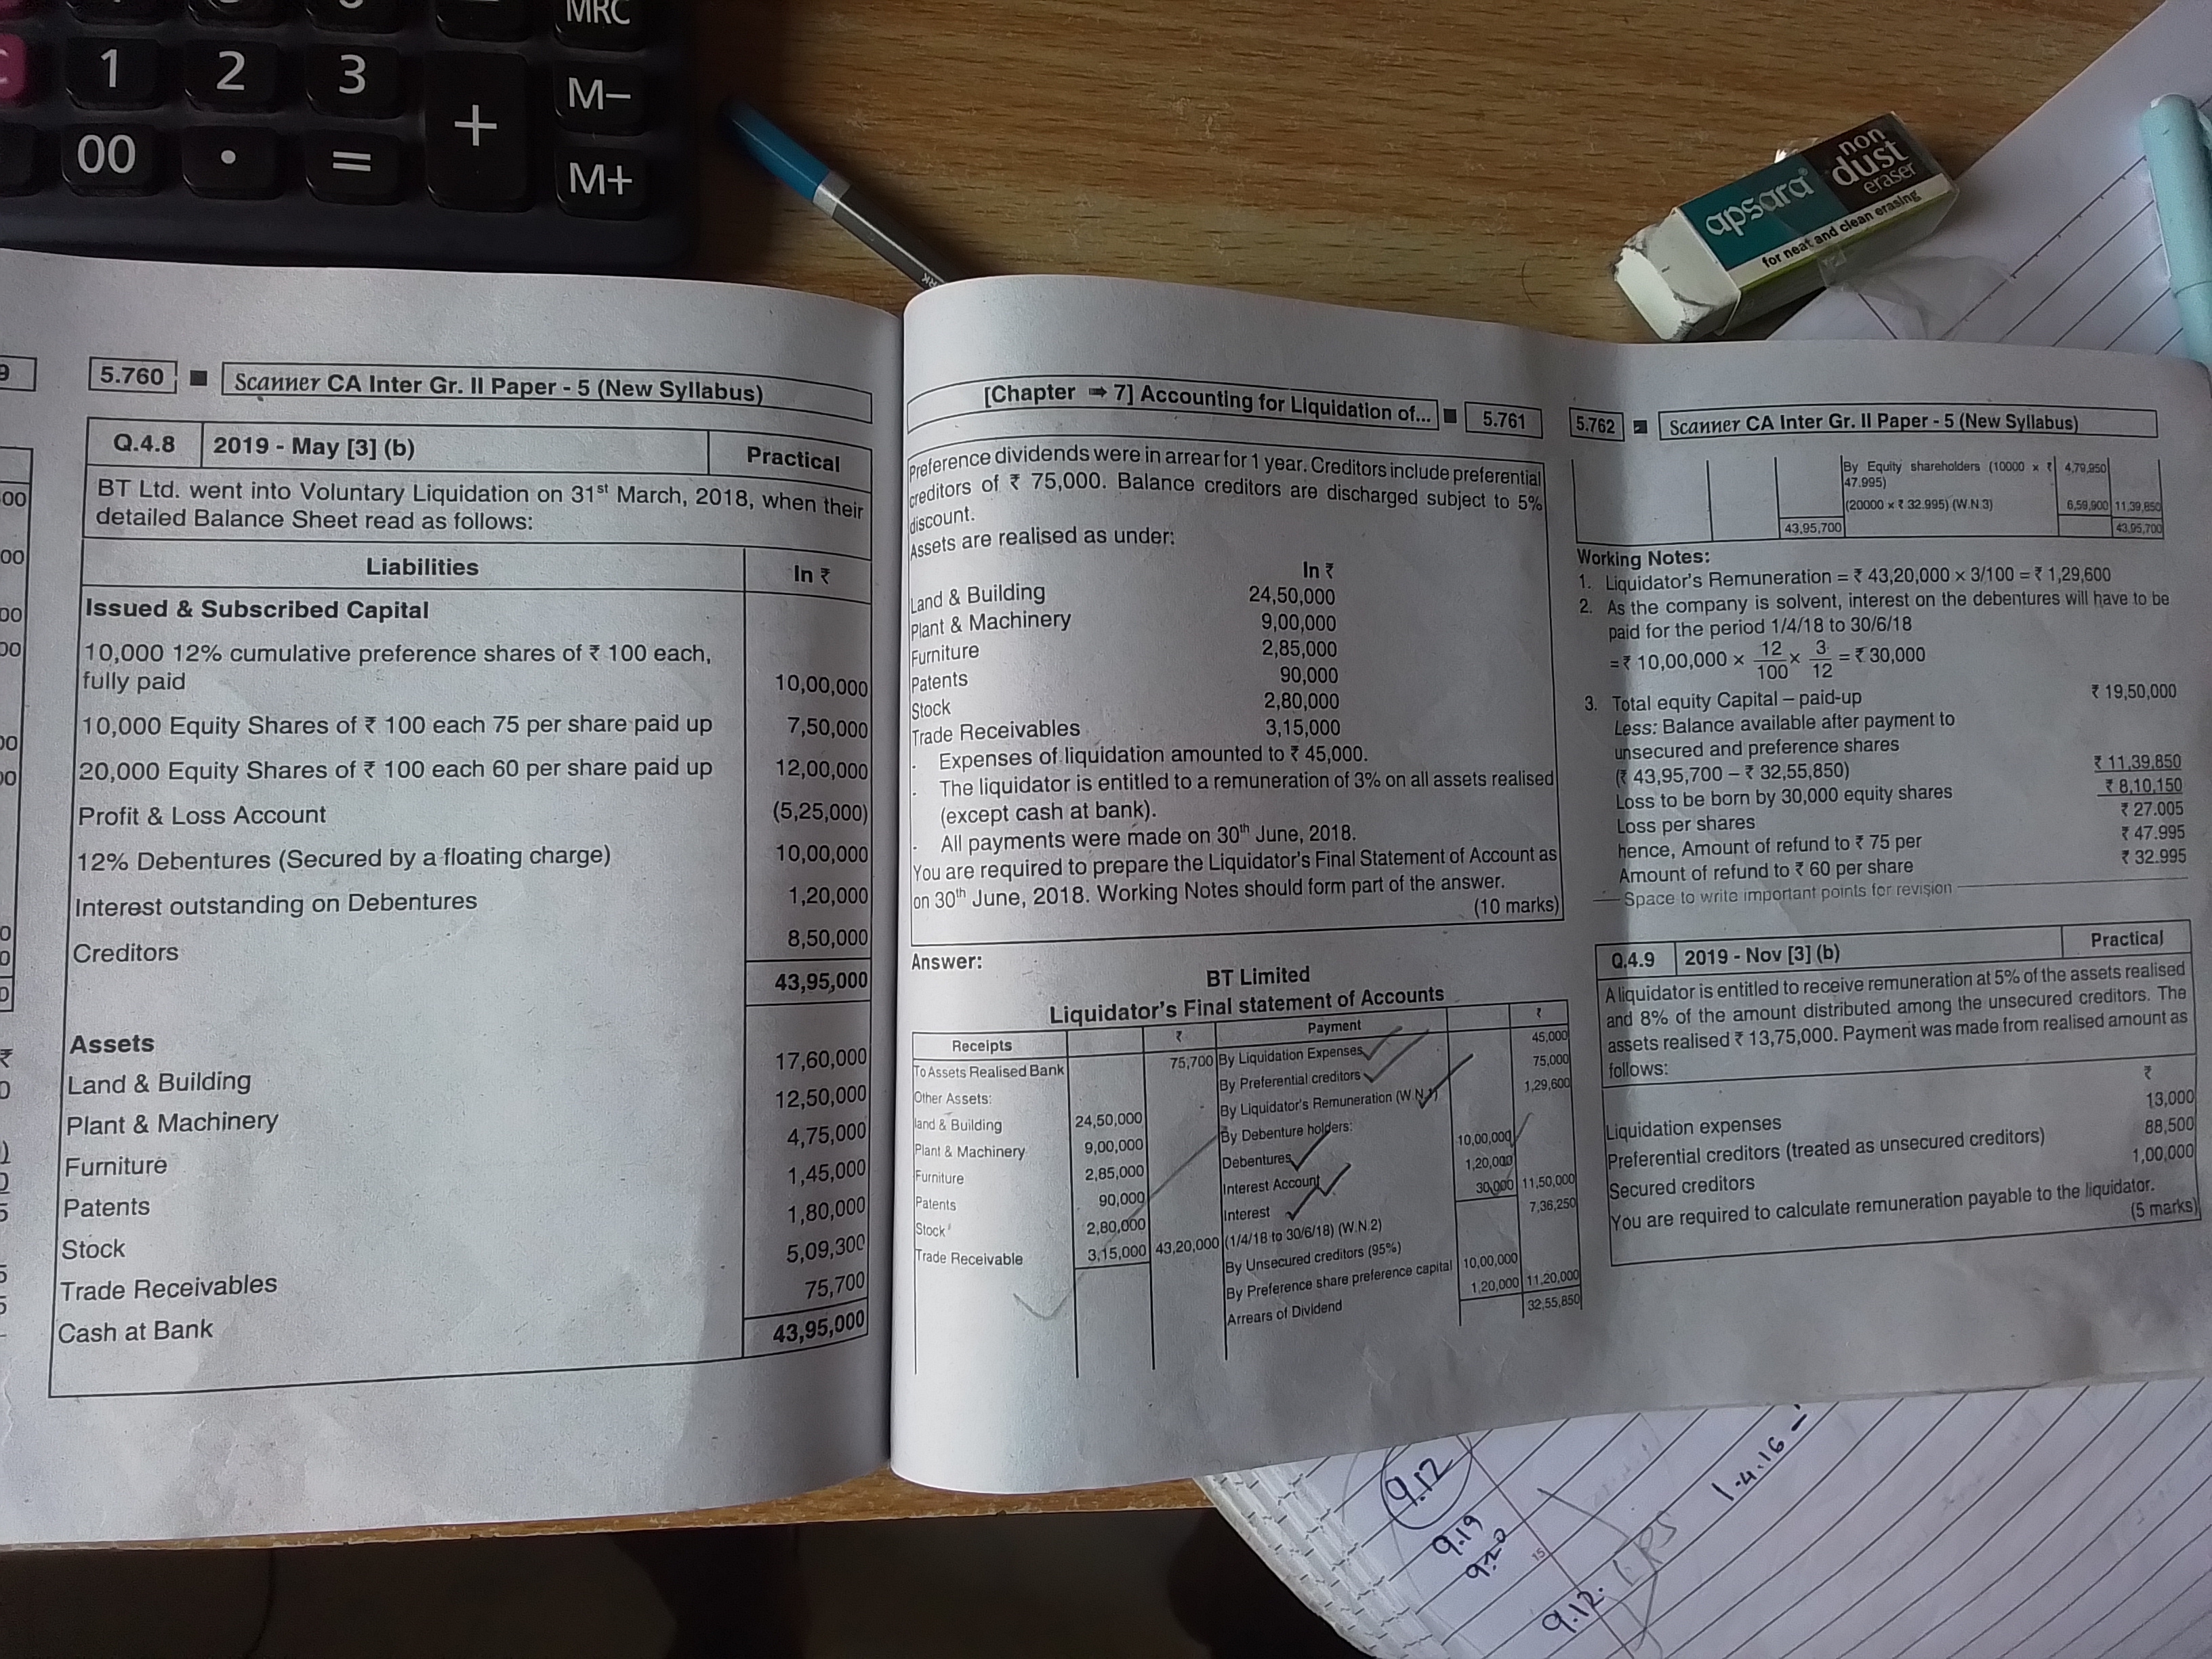 MRC
1 2 3
+
M−
00 • =
M+
apsara
non
dust
eraser
for neat and clean erasing
5.760 ■ Scanner CA Inter Gr. II Paper - 5 (New Syllabus)
Q.4.8 2019 - May [3] (b) Practical
BT Ltd. went into Voluntary Liquidation on 31st March, 2018, when their
detailed Balance Sheet read as follows:
Liabilities In ₹
Issued & Subscribed Capital
10,000 12% cumulative preference shares of ₹ 100 each,
fully paid 10,00,000
10,000 Equity Shares of ₹ 100 each 75 per share paid up 7,50,000
20,000 Equity Shares of ₹ 100 each 60 per share paid up 12,00,000
Profit & Loss Account (5,25,000)
12% Debentures (Secured by a floating charge) 10,00,000
Interest outstanding on Debentures 1,20,000
Creditors 8,50,000
43,95,000
Assets
Land & Building 17,60,000
Plant & Machinery 12,50,000
Furniture 4,75,000
Patents 1,45,000
Stock 1,80,000
Trade Receivables 5,09,300
Cash at Bank 75,700
43,95,000
[Chapter ➠ 7] Accounting for Liquidation of... ■ 5.761
Preference dividends were in arrear for 1 year. Creditors include preferential
creditors of ₹ 75,000. Balance creditors are discharged subject to 5%
discount.
Assets are realised as under:
In ₹
Land & Building 24,50,000
Plant & Machinery 9,00,000
Furniture 2,85,000
Patents 90,000
Stock 2,80,000
Trade Receivables 3,15,000
- Expenses of liquidation amounted to ₹ 45,000.
- The liquidator is entitled to a remuneration of 3% on all assets realised
(except cash at bank).
- All payments were made on 30th June, 2018.
You are required to prepare the Liquidator's Final Statement of Account as
on 30th June, 2018. Working Notes should form part of the answer.
(10 marks)
Answer:
BT Limited
Liquidator's Final statement of Accounts
Receipts ₹ Payment ₹
To Assets Realised Bank 75,700 By Liquidation Expenses 45,000
Other Assets: By Preferential creditors 75,000
land & Building 24,50,000 By Liquidator's Remuneration (W.N.1) 1,29,600
Plant & Machinery 9,00,000 By Debenture holders:
Furniture 2,85,000 Debentures 10,00,000
Patents 90,000 Interest Account 1,20,000
Stock 2,80,000 Interest 30,000 11,50,000
Trade Receivable 3,15,000 43,20,000 (1/4/18 to 30/6/18) (W.N.2)
By Unsecured creditors (95%) 7,36,250
By Preference share preference capital 10,00,000
Arrears of Dividend 1,20,000 11,20,000
32,55,850
5.762 ■ Scanner CA Inter Gr. II Paper - 5 (New Syllabus)
By Equity shareholders (10000 x ₹ 4,79,950
47.995)
(20000 x ₹ 32.995) (W.N.3) 6,59,900 11,39,850
43,95,700 43,95,700
Working Notes:
1. Liquidator's Remuneration = ₹ 43,20,000 × 3/100 = ₹ 1,29,600
2. As the company is solvent, interest on the debentures will have to be
paid for the period 1/4/18 to 30/6/18
= ₹ 10,00,000 × 12/100 × 3/12 = ₹ 30,000
3. Total equity Capital – paid-up ₹ 19,50,000
Less: Balance available after payment to
unsecured and preference shares
(₹ 43,95,700 – ₹ 32,55,850) ₹ 11,39,850
Loss to be born by 30,000 equity shares ₹ 8,10,150
Loss per shares ₹ 27.005
hence, Amount of refund to ₹ 75 per ₹ 47.995
Amount of refund to ₹ 60 per share ₹ 32.995
Space to write important points for revision
Q.4.9 2019 - Nov [3] (b) Practical
A liquidator is entitled to receive remuneration at 5% of the assets realised
and 8% of the amount distributed among the unsecured creditors. The
assets realised ₹ 13,75,000. Payment was made from realised amount as
follows:
₹
Liquidation expenses 13,000
Preferential creditors (treated as unsecured creditors) 88,500
Secured creditors 1,00,000
You are required to calculate remuneration payable to the liquidator.
(5 marks)
9.12
9.19
9.20
9.12.
1.4.16 –
15